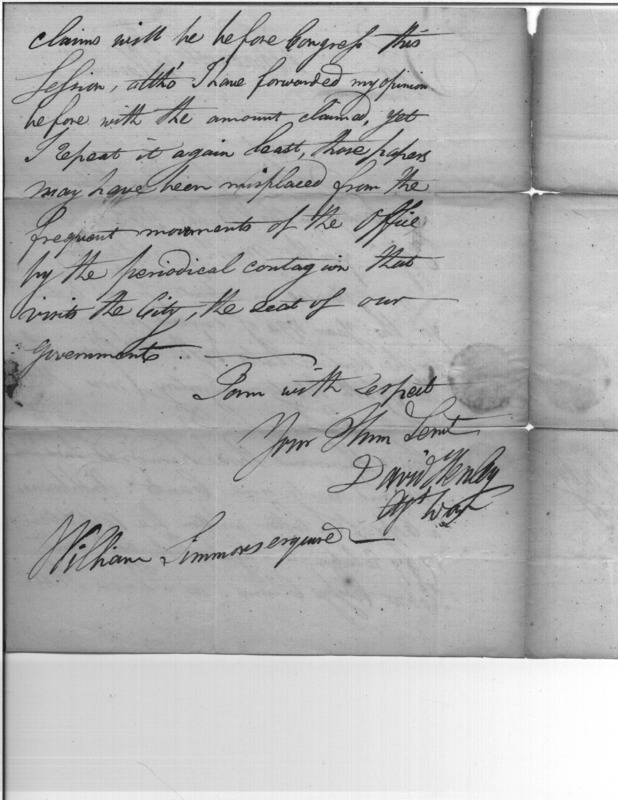 claims will be before Congress this
Session, altho' I have forwarded my opinion
before with the amount claimed, yet
I repeat it again least, those papers
may have been misplaced from the
frequent movments of the Office
by the periodical contagion that
visits the City, the seat of our
Governments.
I am with respect
Your Hum Servt
David Henley
Agt War
William Simmons esquire